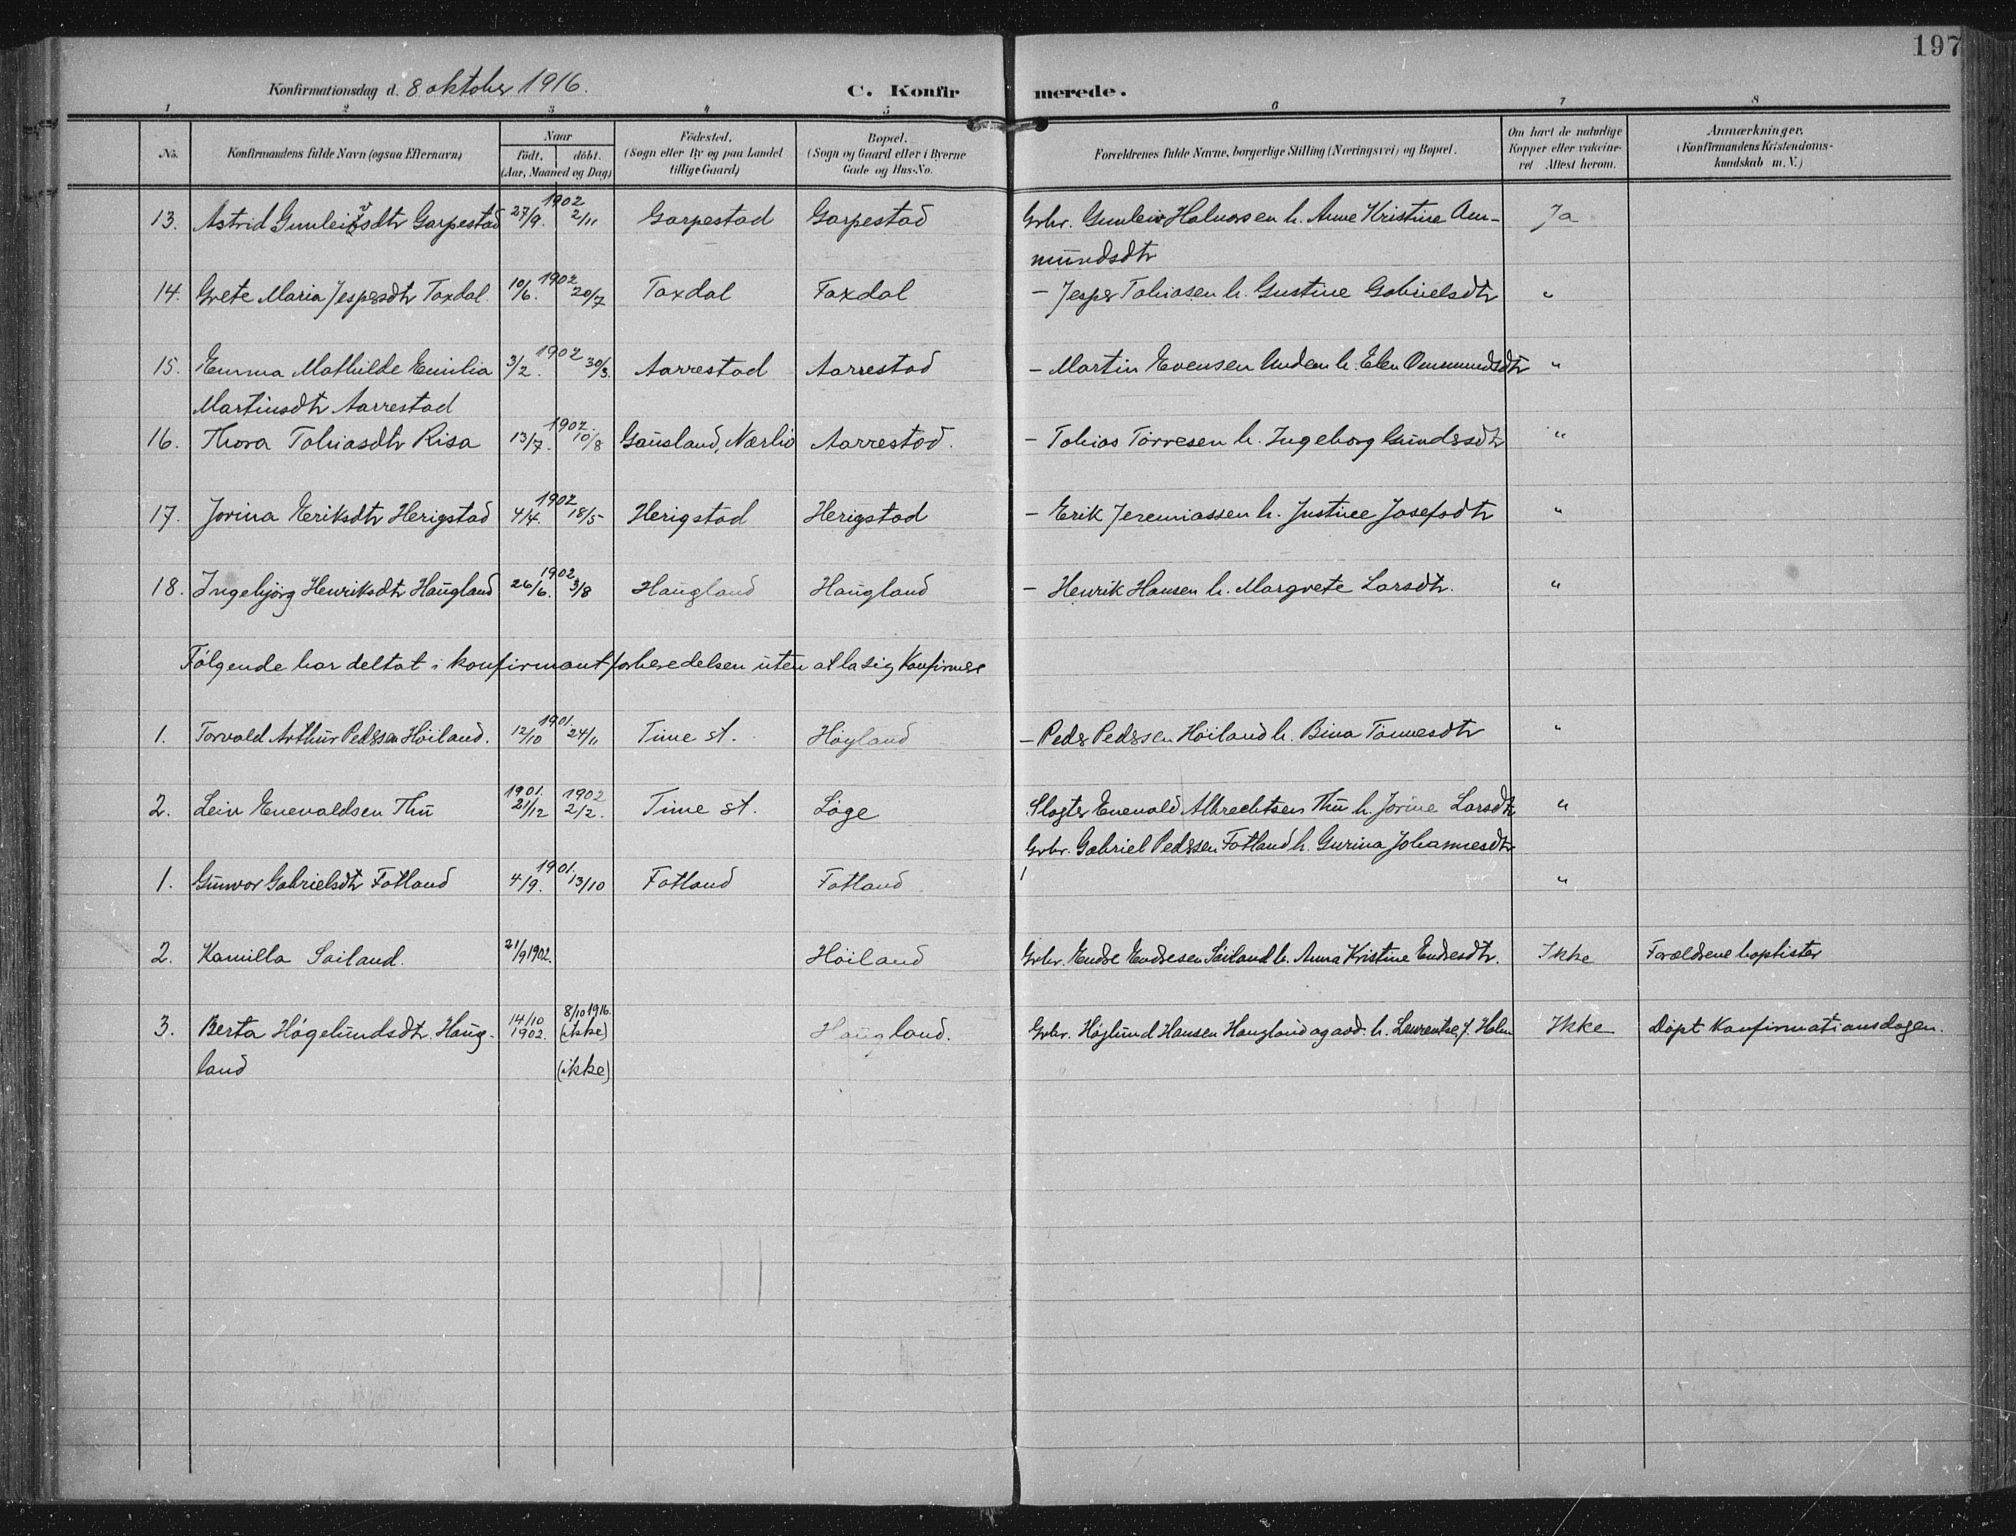 197
Konfirmationsdag d. 8 oktober 1916. C. Konfirmerede.
1 2 3 4 5 6 7 8
No. Konfirmandens fulde Navn (ogsaa Efternavn) Naar födt. döbt. (Aar, Maaned og Dag) Födested. (Sogn eller By og paa Landet tillige Gaard) Bopæl. (Sogn og Gaard eller i Byerne Gade og Hus-No. Forældrenes fulde Navne, borgerlige Stilling (Næringsvei) og Bopæl. Om havt de naturlige Kopper eller vakcineret Attest herom. Anmærkninger. (Konfirmandens Kristendomskundskab m. V.)
13. Astrid Gunleivsdtr Garpestad 27/9. 1902 2/11 Garpestad Garpestad Grbr. Gunleiv Halvorsen h. Anne Kristine Am- Ja
mundsdtr
14. Grete Maria Jespersdtr Taxdal. 10/6. 1902 20/7 Taxdal Taxdal - Jesper Tobiasen h. Gustine Gabrielsdtr "
15. Emma Mathilde Emilia 3/2. 1902 30/3. Aarrestad Aarrestad - Martin Evensen h. Elen Ommundsdtr "
Martinsdtr Aarrestad
16. Thora Tobiasdtr Risa 13/7. 1902. 10/8 Gausland, Nærbø Aarrestad. - Tobias Torresen h. Ingeborg Gundersdtr "
17. Jorina Eeriksdtr Herigstad 4/4. 1902 18/5 Herigstad Herigstad - Erik Jeremiassen h. Justine Josefsdtr "
18. Ingebjörg Henriksdtr Haugland 26/6. 1902 3/8 Haugland Haugland - Henrik Hansen h. Margrete Larsdtr. "
Følgende har deltat i konfirmantforberedelsen uten at la sig konfirmere
1. Torvald Arthur Pedersen Höiland. 12/10 1901. 24/11 Time st. Höyland - Peder Pedersen Höiland h. Bina Tönnesdtr "
2. Leiv Enevaldsen Thu 1901. 21/12 1902 2/2. Time st. Løge Slagter Enevald Albrechtsen Thu h. Jorine Larsdtr "
Grbr. Gabriel Pedersen Fotland h. Gurina Johannesdtr
1. Gunvor Gabrielsdtr Fotland 4/9. 1901. 13/10 Fotland Fotland "
2. Kamilla Soiland. 21/9 1902. Höiland Grbr. Endre Endresen Söiland h. Anna Kristine Endresdtr. Ikke Forældrene baptister
3. Berta Högelundsdtr. Haug- 14/10 1902. 8/10 1916. (ikke) Haugland. Grbr. Höglund Hansen Haugland og avd. h. Laurentse f. Holm Ikke Döpt Konfirmationsdagen.
land (ikke)